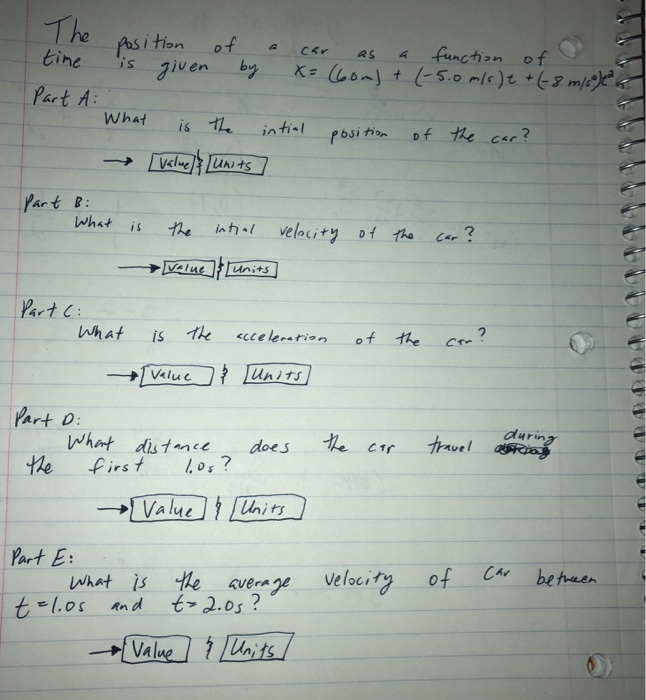 The position of a car as a function of
time is given by x = (60m) + (-5.0 m/s)t + (-8 m/s²)t²
Part A:
What is the intial position of the car?
→ [Value] & [Units]
Part B:
What is the intial velocity of the car?
→ [Value] & [Units]
Part C:
What is the acceleration of the car?
→ [Value] & [Units]
Part D:
What distance does the car travel during
the first 1.0s?
→ [Value] & [Units]
Part E:
What is the average velocity of car between
t = 1.0s and t = 2.0s?
→ [Value] & [Units]